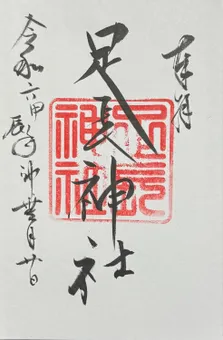 奉拝
足長神社
足長
神社
令和六甲辰年神無月廿日